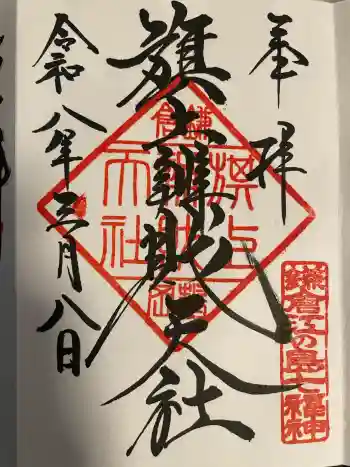 奉拝
旗上辨財天社
令和八年三月八日
鎌倉
旗上
辨財
天社
鎌倉江の島七福神